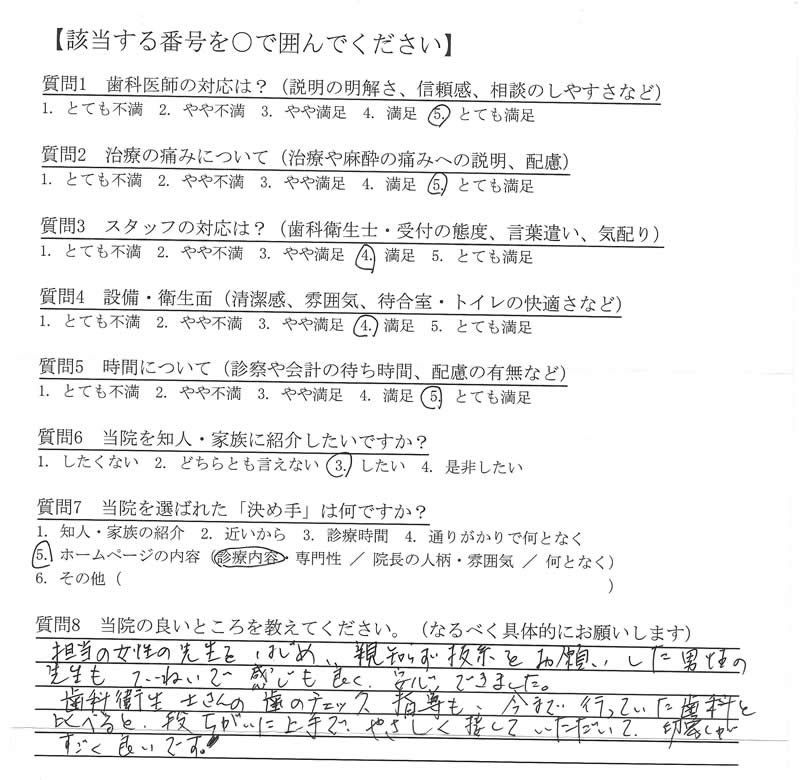 【該当する番号を○で囲んでください】
質問1 歯科医師の対応は？（説明の明解さ、信頼感、相談のしやすさなど）
1. とても不満 2. やや不満 3. やや満足 4. 満足 5. とても満足
質問2 治療の痛みについて（治療や麻酔の痛みへの説明、配慮）
1. とても不満 2. やや不満 3. やや満足 4. 満足 5. とても満足
質問3 スタッフの対応は？（歯科衛生士・受付の態度、言葉遣い、気配り）
1. とても不満 2. やや不満 3. やや満足 4. 満足 5. とても満足
質問4 設備・衛生面（清潔感、雰囲気、待合室・トイレの快適さなど）
1. とても不満 2. やや不満 3. やや満足 4. 満足 5. とても満足
質問5 時間について（診察や会計の待ち時間、配慮の有無など）
1. とても不満 2. やや不満 3. やや満足 4. 満足 5. とても満足
質問6 当院を知人・家族に紹介したいですか？
1. したくない 2. どちらとも言えない 3. したい 4. 是非したい
質問7 当院を選ばれた「決め手」は何ですか？
1. 知人・家族の紹介 2. 近いから 3. 診療時間 4. 通りがかりで何となく
5. ホームページの内容（診療内容・専門性 ／ 院長の人柄・雰囲気 ／ 何となく）
6. その他（ ）
質問8 当院の良いところを教えてください。（なるべく具体的にお願いします）
担当の女性の先生をはじめ、親知らず抜糸をお願いした男性の
先生も ていねいで 感じも良く、安心できました。
歯科衛生士さんの歯のチェック 指導も、今まで 行っていた歯科と
比べると、段ちがいに上手で、やさしく 接して いただいて、
すごく良いです。